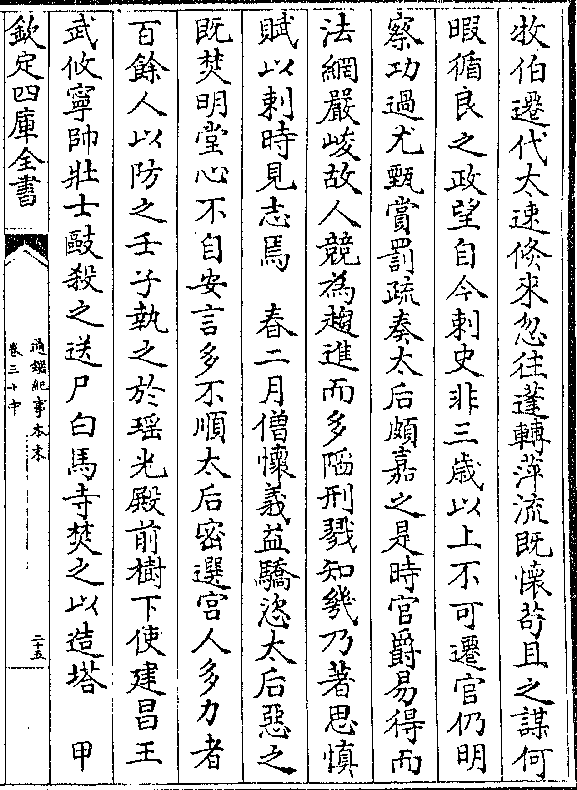 牧伯遷代太速倐來忽往蓬轉萍流既懷苟且之謀何
暇循良之政望自今刺史非三歳以上不可遷官仍明
察功過尤甄賞罰疏奏太后頗嘉之是時官爵易得而
法網嚴峻故人競為趨進而多陷刑戮知幾乃著思慎
賦以刺時見志焉　春二月僧懷義益驕恣太后惡之
既焚明堂心不自安言多不順太后密選宫人多力者
百餘人以防之壬子執之於瑶光殿前樹下使建昌王
武攸寧帥壯士毆殺之送尸白馬寺焚之以造塔　甲
欽定四庫全書
通鑑紀事本末
卷三十中
二十五